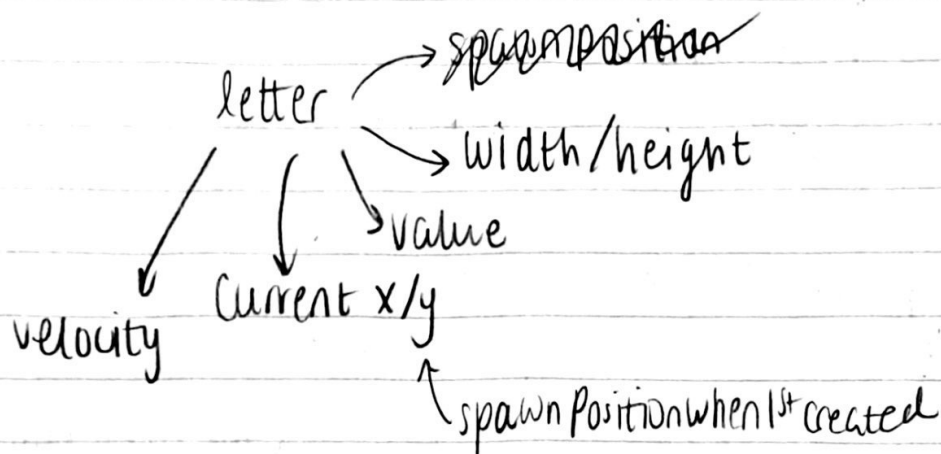 spawnposition
letter
width/height
value
Current x/y
velocity
spawn Position when 1st created